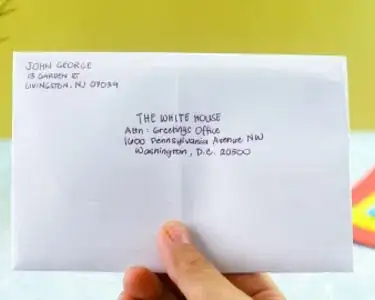 JOHN GEORGE
13 GARDEN ST
LIVINGSTON, NJ 07039
THE WHITE HOUSE
Attn: Greetings Office
1600 Pennsylvania Avenue NW
Washington, D.C. 20500